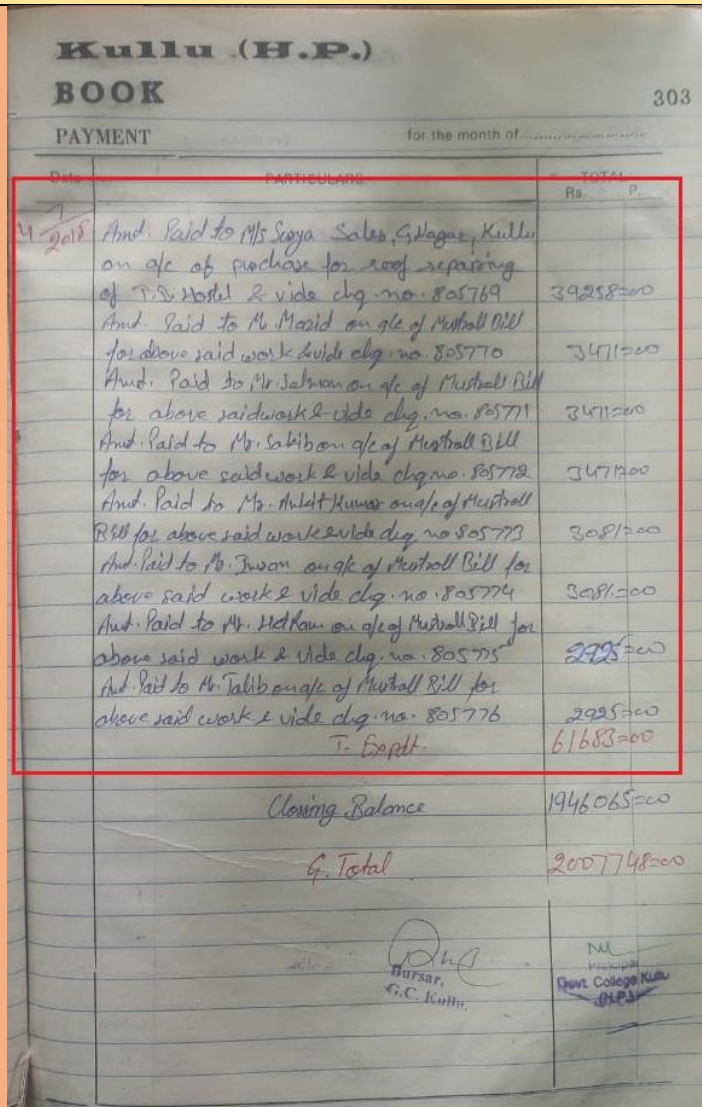 Kullu (H.P.)
BOOK
303
PAYMENT for the month of
Date PARTICULARS TOTAL
Rs. P.
4/7/2018 Amt. Paid to M/s Surya Sales, G.Nagar, Kullu
on a/c of purchase for roof repairing
of T.R. Hostel & vide chq. no. 805769 39258=00
Amt. Paid to Mr. Mazid on a/c of Mustroll Bill
for above said work & vide chq. no. 805770 3471=00
Amt. Paid to Mr. Salman on a/c of Mustroll Bill
for above said work & vide chq. no. 805771 3471=00
Amt. Paid to Mr. Sakib on a/c of Mustroll Bill
for above said work & vide chq. no. 805772 3471=00
Amt. Paid to Mr. Ankit Kumar on a/c of Mustroll
Bill for above said work & vide chq. no 805773 3081=00
Amt. Paid to Mr. on a/c of Mustroll Bill for
above said work & vide chq. no. 805774 3081=00
Amt. Paid to Mr. Het Ram on a/c of Mustroll Bill for
above said work & vide chq. no. 805775 2925=00
Amt. Paid to Mr. Talib on a/c of Mustroll Bill for
above said work & vide chq. no. 805776 2925=00
T. Expdt. 61683=00
Closing Balance 1946065=00
G. Total 2007748=00
Bursar,
G.C. Kullu.
Principal
Govt. College Kullu
(H.P.)